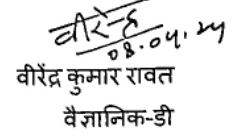 वीरेन्द्र
08.04.24
वीरेंद्र कुमार रावत
वैज्ञानिक-डी